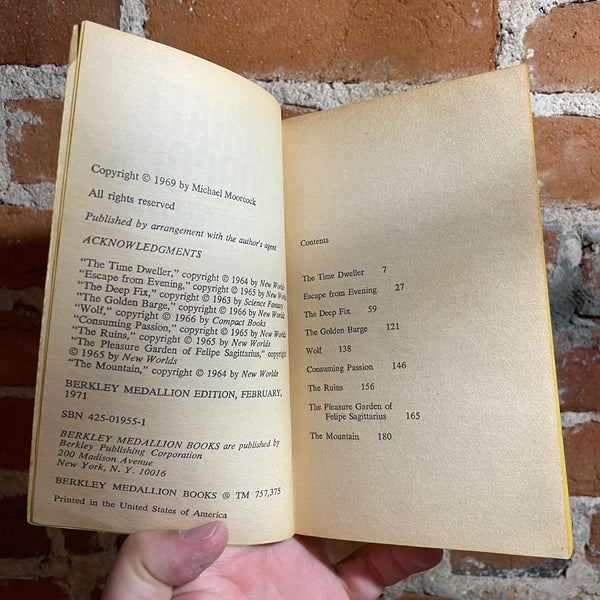 Copyright © 1969 by Michael Moorcock
All rights reserved
Published by arrangement with the author's agent
ACKNOWLEDGMENTS
"The Time Dweller," copyright © 1964 by New Worlds
"Escape from Evening," copyright © 1965 by New Worlds
"The Deep Fix," copyright © 1963 by Science Fantasy
"The Golden Barge," copyright © 1966 by New Worlds
"Wolf," copyright © 1966 by Compact Books
"Consuming Passion," copyright © 1966 by New Worlds
"The Ruins," copyright © 1965 by New Worlds
"The Pleasure Garden of Felipe Sagittarius," copyright
© 1965 by New Worlds
"The Mountain," copyright © 1964 by New Worlds
BERKLEY MEDALLION EDITION, FEBRUARY,
1971
SBN 425-01955-1
BERKLEY MEDALLION BOOKS are published by
Berkley Publishing Corporation
200 Madison Avenue
New York, N. Y. 10016
BERKLEY MEDALLION BOOKS ® TM 757,375
Printed in the United States of America
Contents
The Time Dweller 7
Escape from Evening 27
The Deep Fix 59
The Golden Barge 121
Wolf 138
Consuming Passion 146
The Ruins 156
The Pleasure Garden of
Felipe Sagittarius 165
The Mountain 180